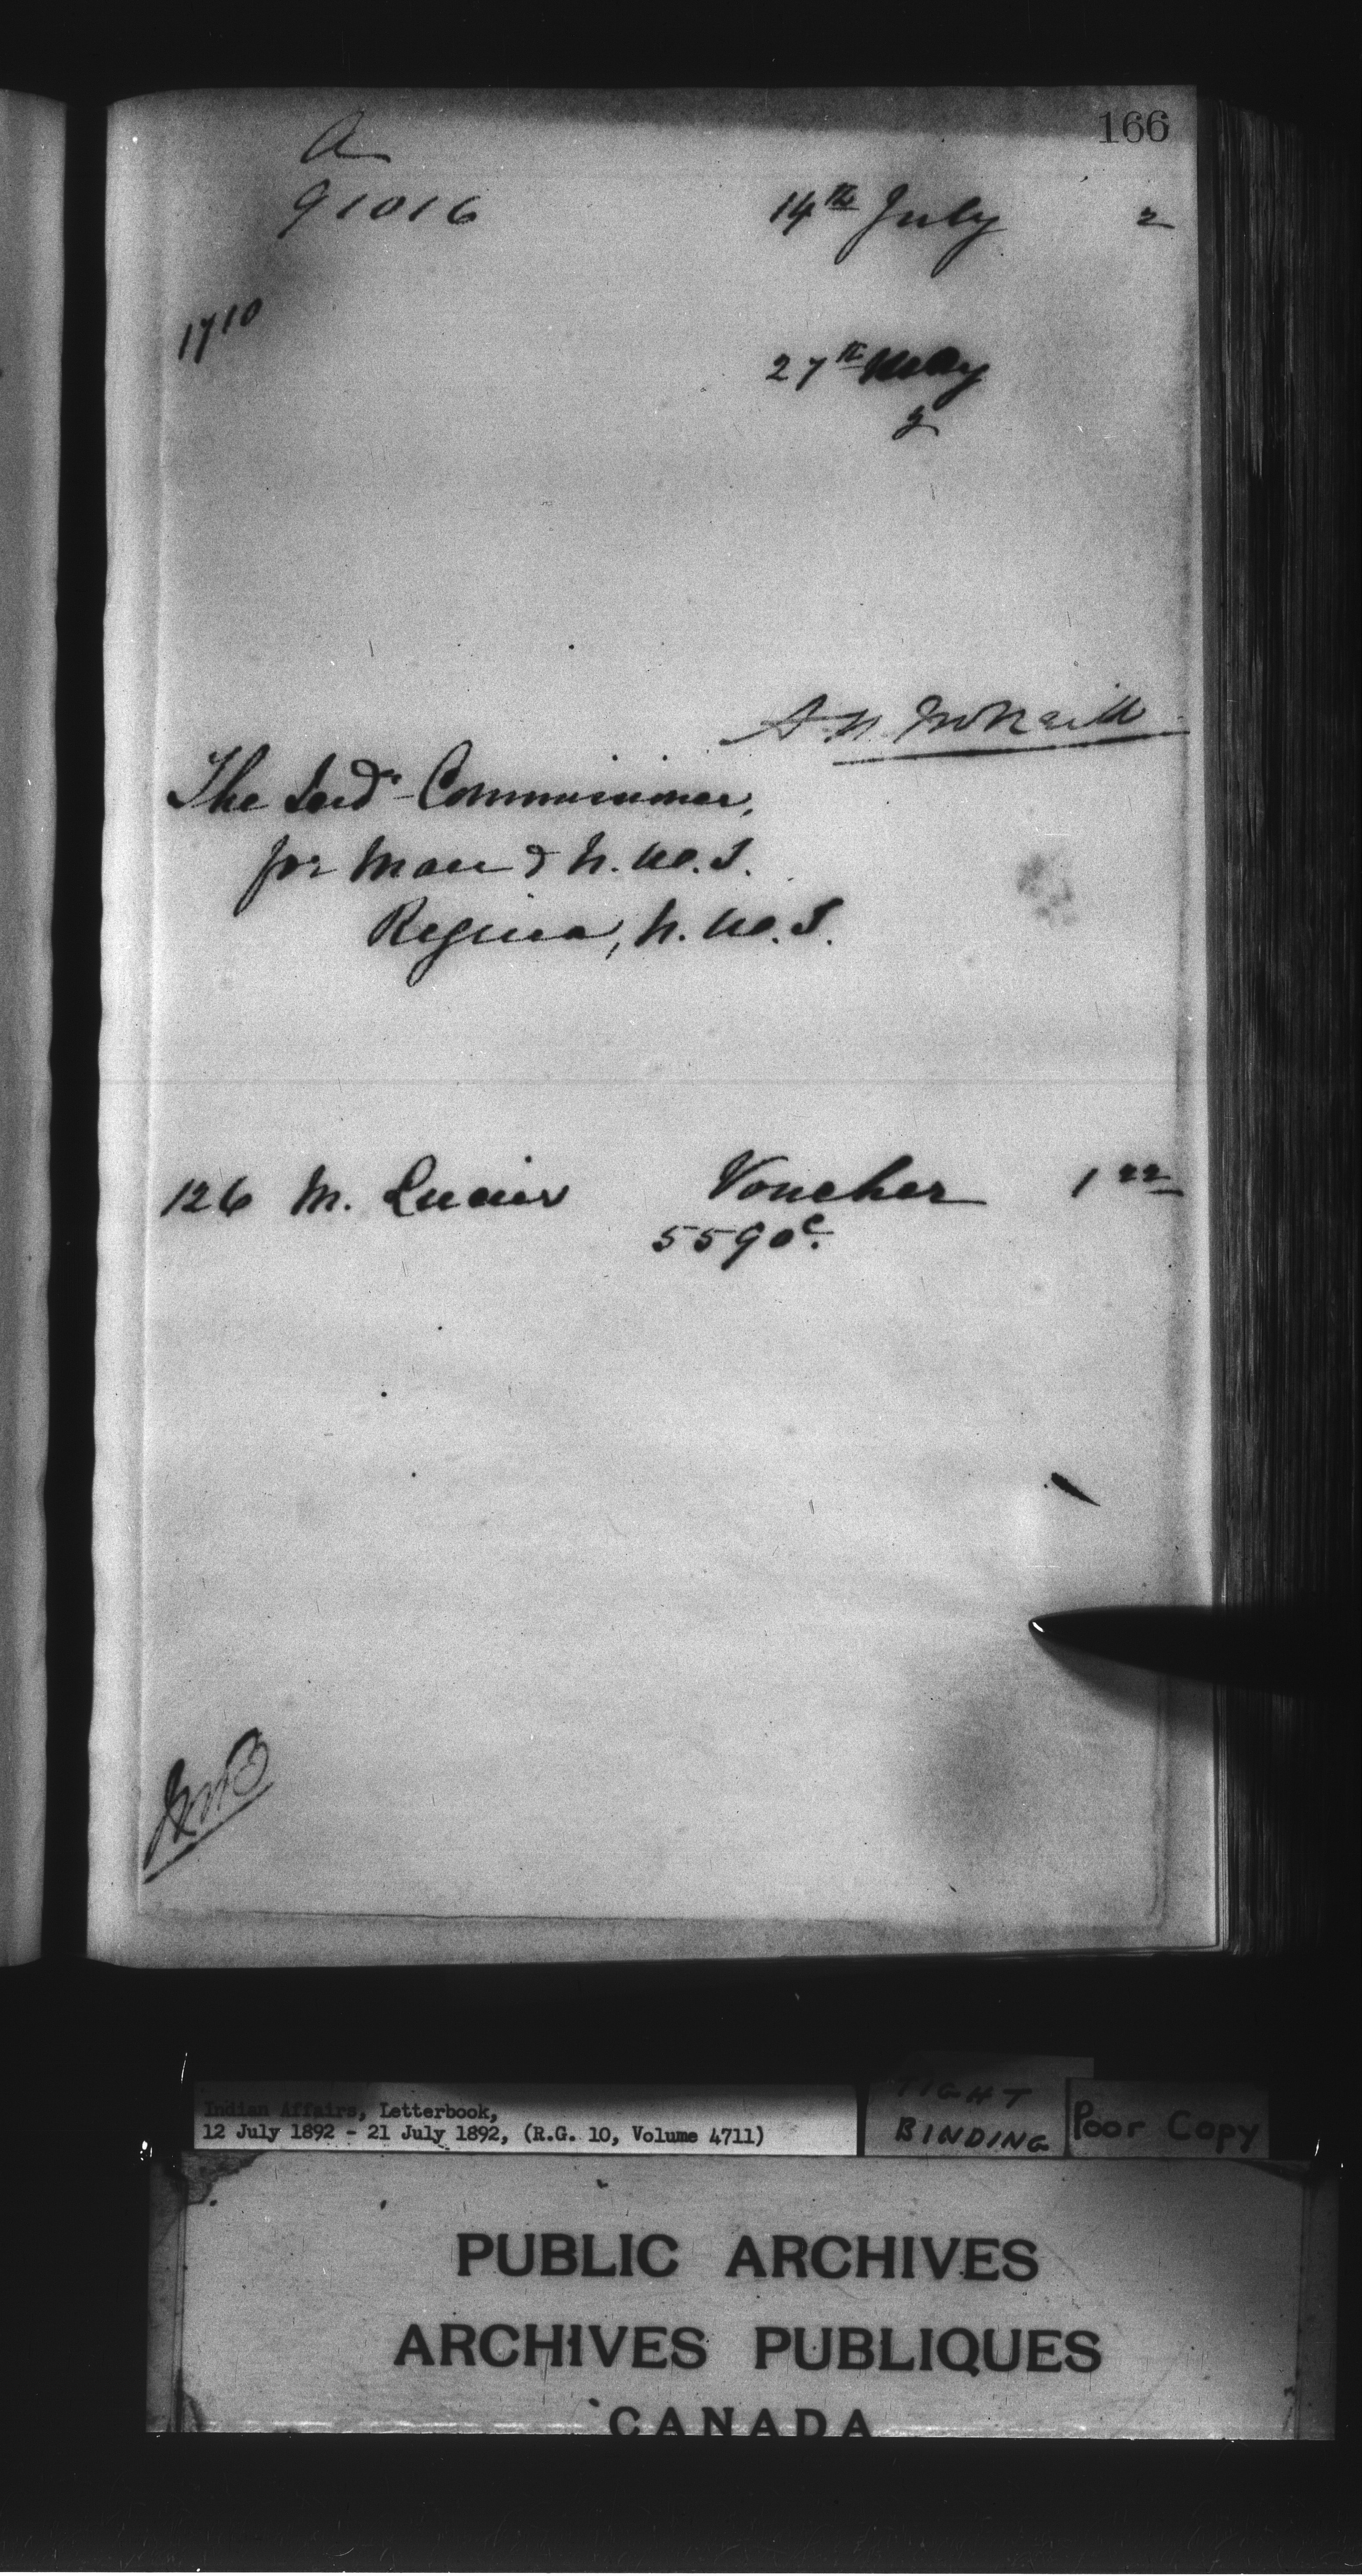 166
A
91016 14th July 2
1710
27th May
2
A. N. McNeill
The Ind. Commissioner,
for Man & N.W.T.
Regina, N.W.T.
126 M. Lucier Voucher 1 22
5590c.
Indian Affairs, Letterbook,
12 July 1892 - 21 July 1892, (R.G. 10, Volume 4711)
TIGHT
BINDING
Poor Copy
PUBLIC ARCHIVES
ARCHIVES PUBLIQUES
CANADA